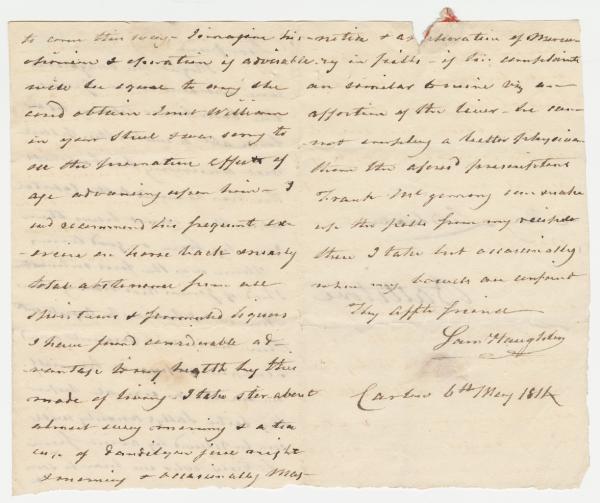 to come this way – I imagine his
opinion & operation if adviseable
will be equal to any she
could obtain – I met William
in your Street & was sorry to
see the premature effects of
age advancing upon him – I
sud recommend his frequent ex-
-ercise on horse back & nearly
total abstinence from all
spiritous & fermented liquors
I have found considerable ad-
vantage to my health by this
mode of living. I take
almost every morning & a tea
cup of dandelyon juice night
& morning & occasionally Mag-
-netia & a preparation of Mercu-
-ry in pills – if his complaints
are similar to mine viz an
affection of the liver – he can-
not employ a better physician
than the afores'd prescriptions
Frank can make
up the pills from my recipe
these I take but occasionally
when my bowels are confined
Thy affte friend
Sam Haughton
Carlow 6th May 1814